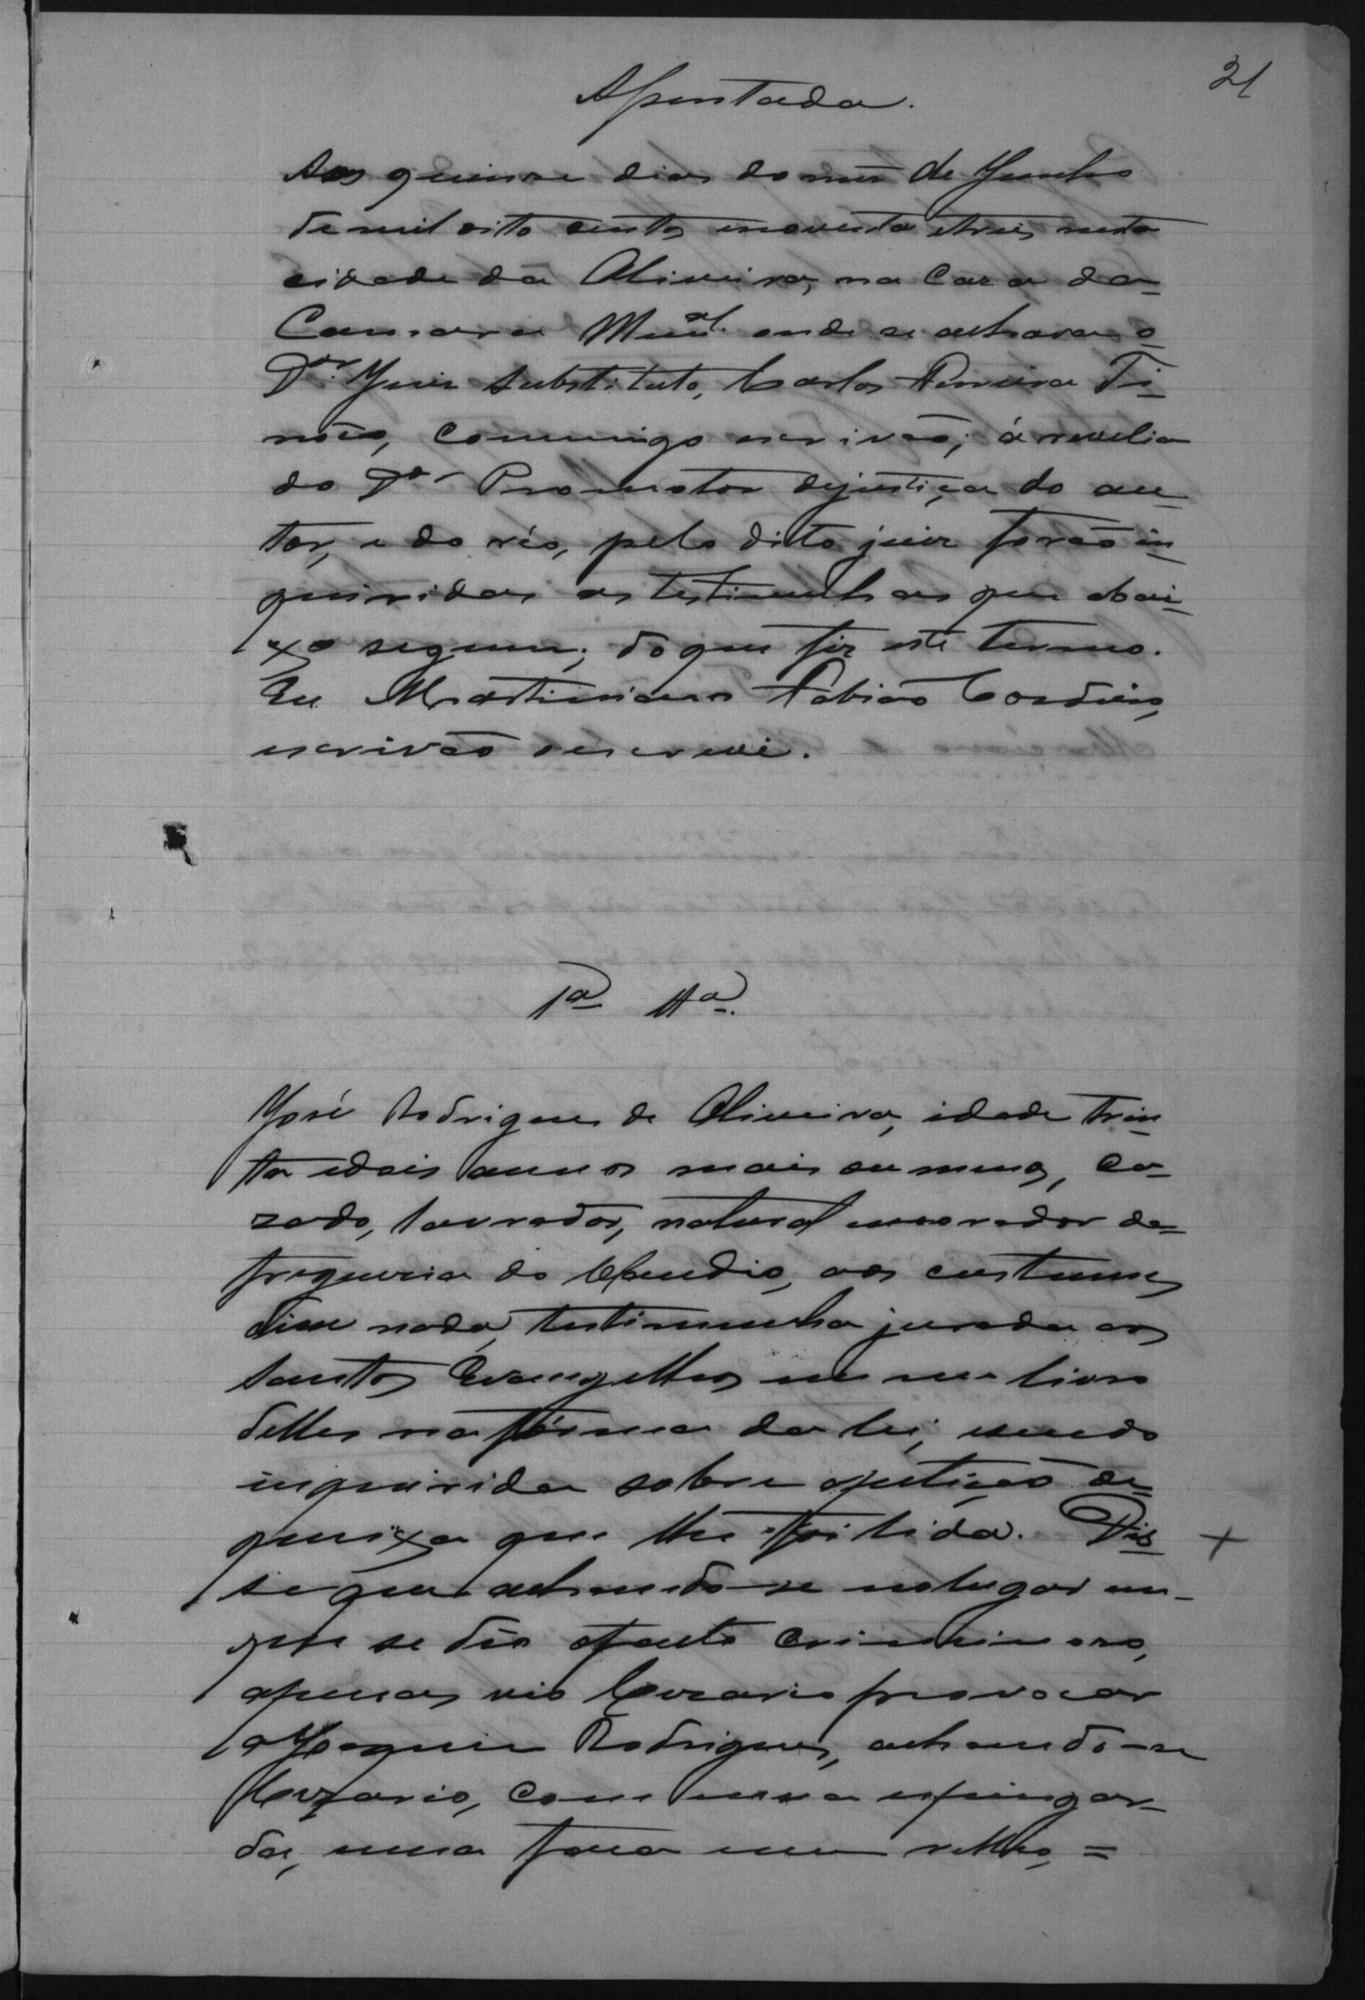 21
Assentada.
Aos quinze dias do mês de Junho
de mil oito centos enoventa etreis nesta
cidade da Oliveira, na Caza da
Camara Mun.al onde se achava o
D.or Juiz Substituto, Carlos Ferreira Ti-
nôco, commigo escrivão; á revelia
do D.or Promotor dejustiça do au-
tor, e do réo, pelo dito juiz forão in-
quiridas as testimunhas que abai-
xo seguem; do que fiz este termo.
Eu Martiniano Fabião Cordeiro,
escrivão o escrevi.
1a tta.
José Rodrigues de Oliveira, idade trin-
ta edois annos mais ou menos, ca-
zado, lavrador, natural emorador da
freguezia do Claudio, aos custumes
disse nada, testimunha jurada aos
Santos Evangelhos em um livro
delles na fórma da lei, esendo
inquirida sobre apetição de
queixa que lhe foi lida. Dis
se que achando-se nolugar em
que se deo ofacto criminoso,
apenas vio Cezario provocar
a Joaquim Rodrigues, achando-se
Cezario, com uma espingar-
da, uma faca eum relho, =